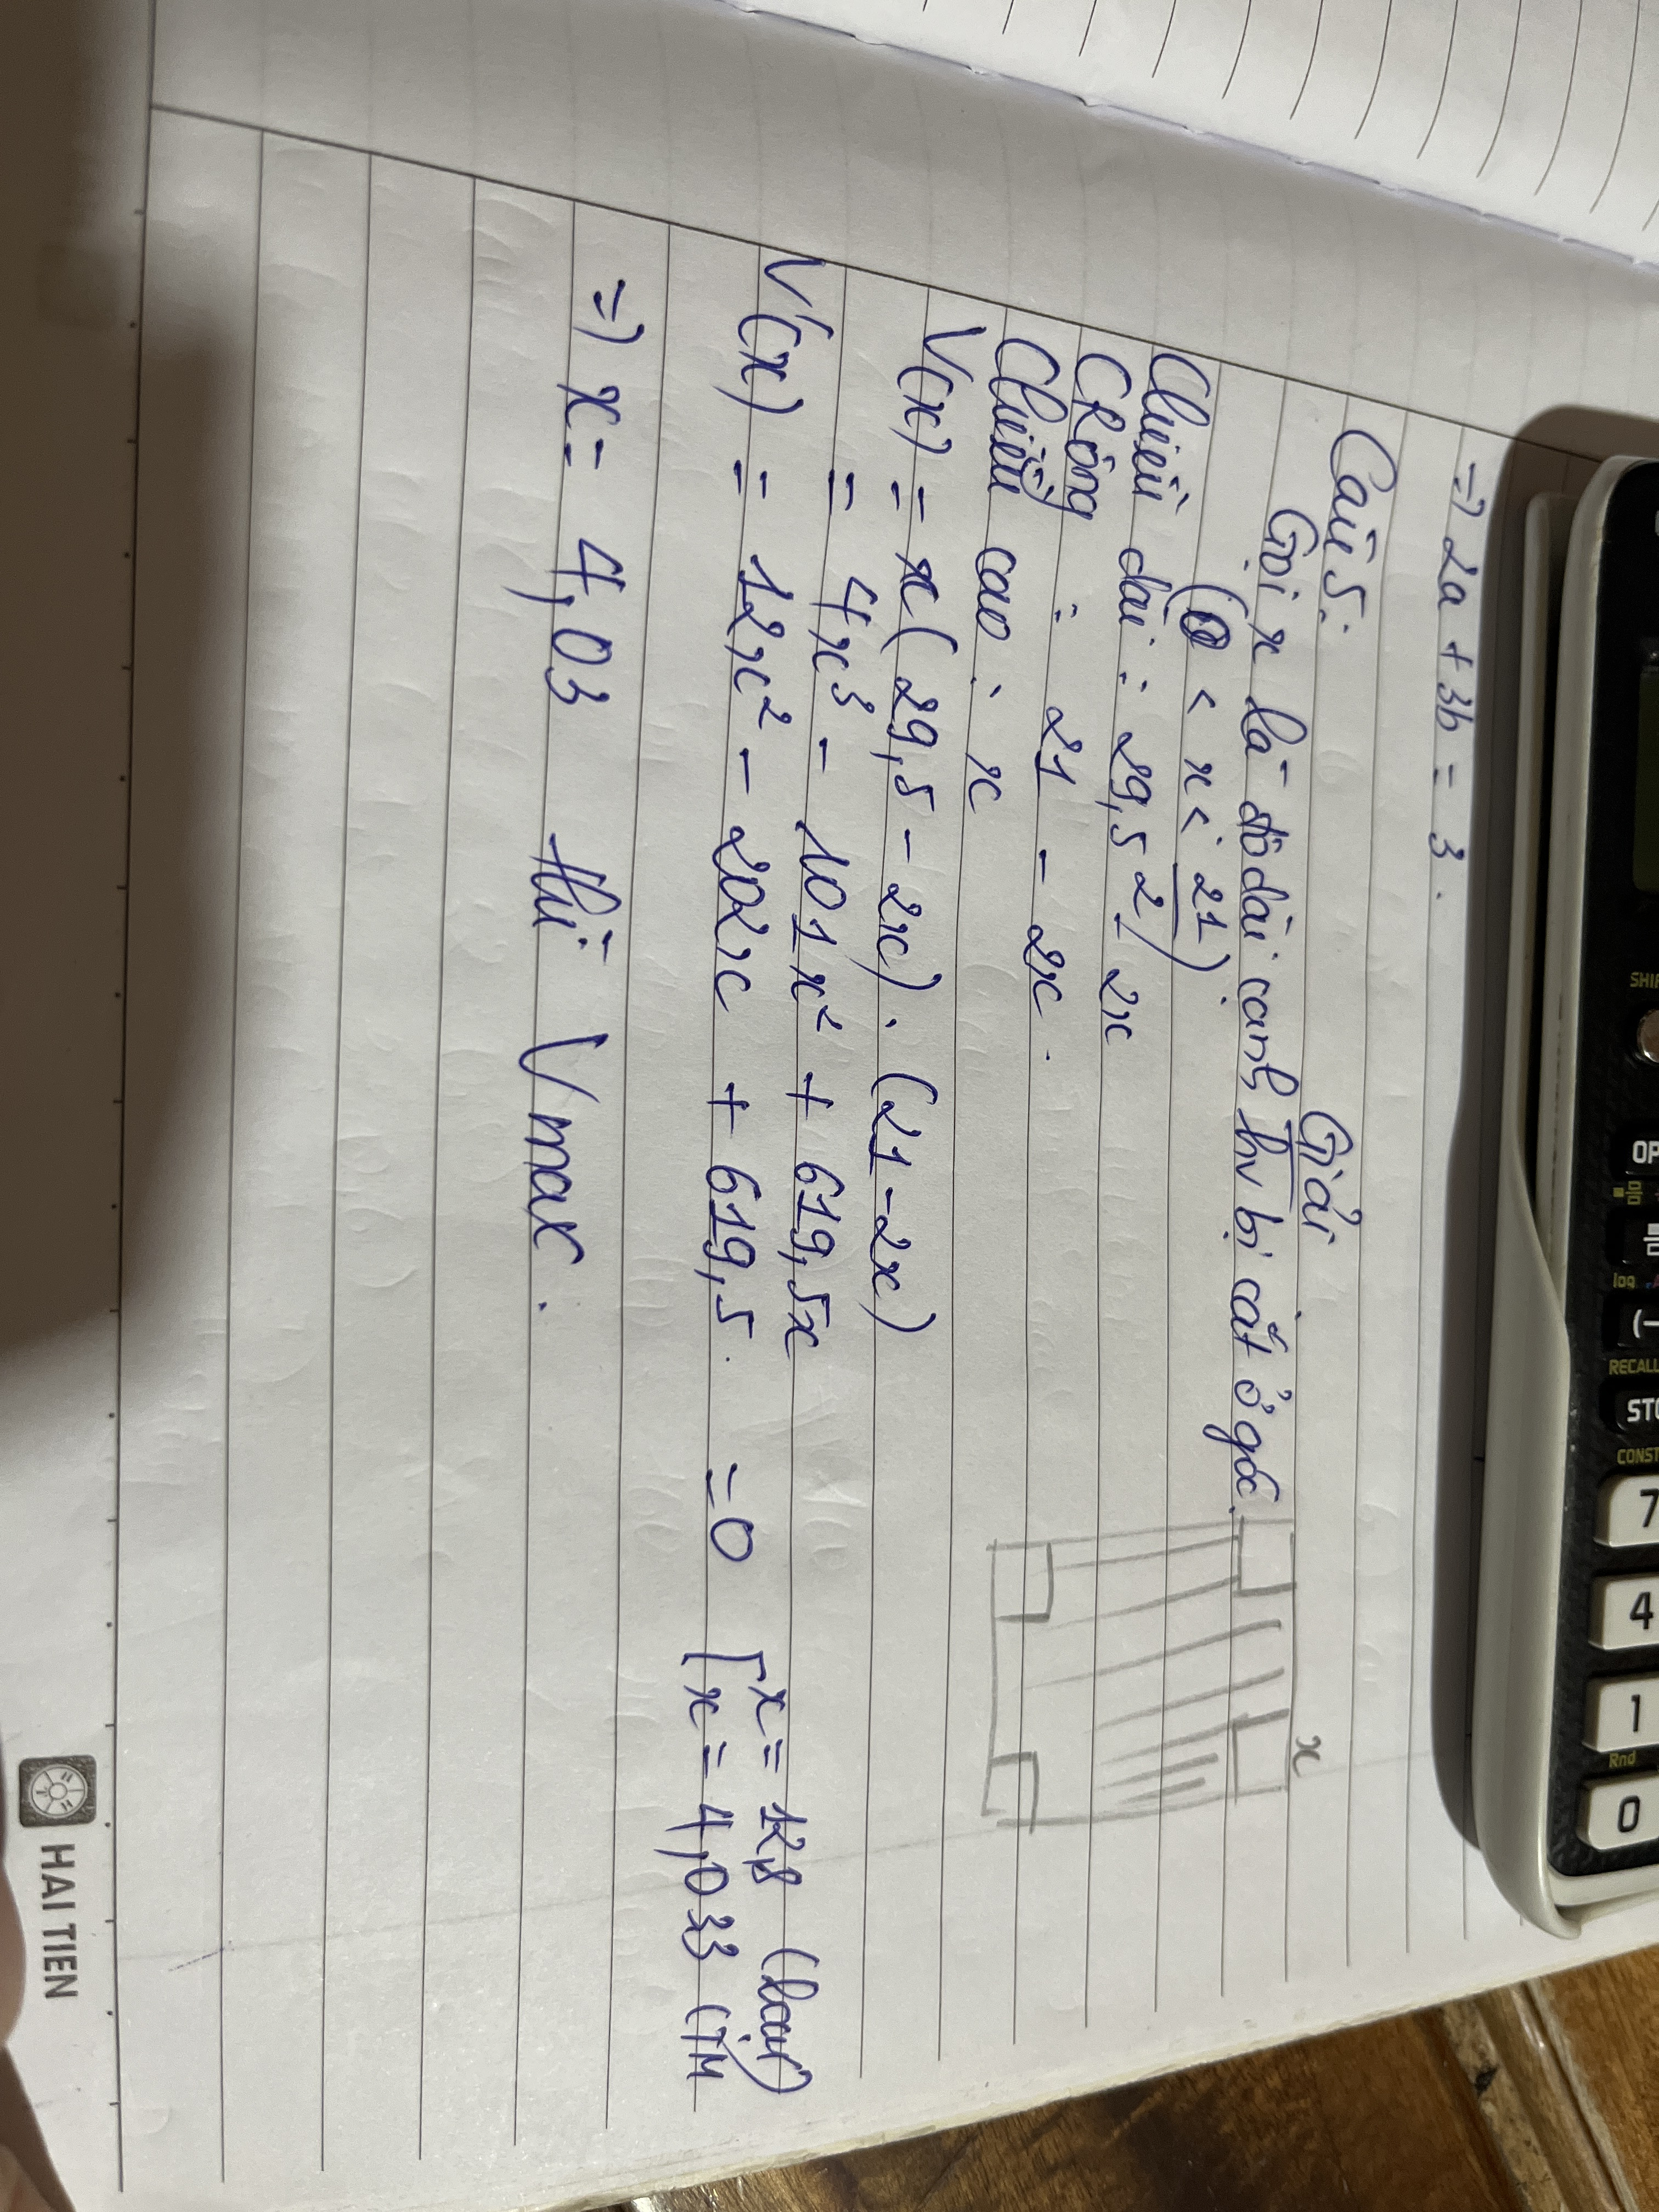 =) 2a + 3b = 3.
Câu 5:
Giải
Gọi x là độ dài cạnh hv bị cắt ở góc.
x
(0 < x < 21/2)
Chiều dài : 29,5 - 2x
C Rộng : 21 - 2x.
Chiều cao : x
V(x) = x(29,5 - 2x) . (21 - 2x)
= 4x³ - 101x² + 619,5x
V'(x) = 12x² - 202x + 619,5 = 0 [ x = 12,8 (loại)
x = 4,033 (TM
=) x = 4,03 thì Vmax.
HAI TIEN
SHIF
OP
log
(-
RECALL
STO
CONST
7
4
1
Rnd
0